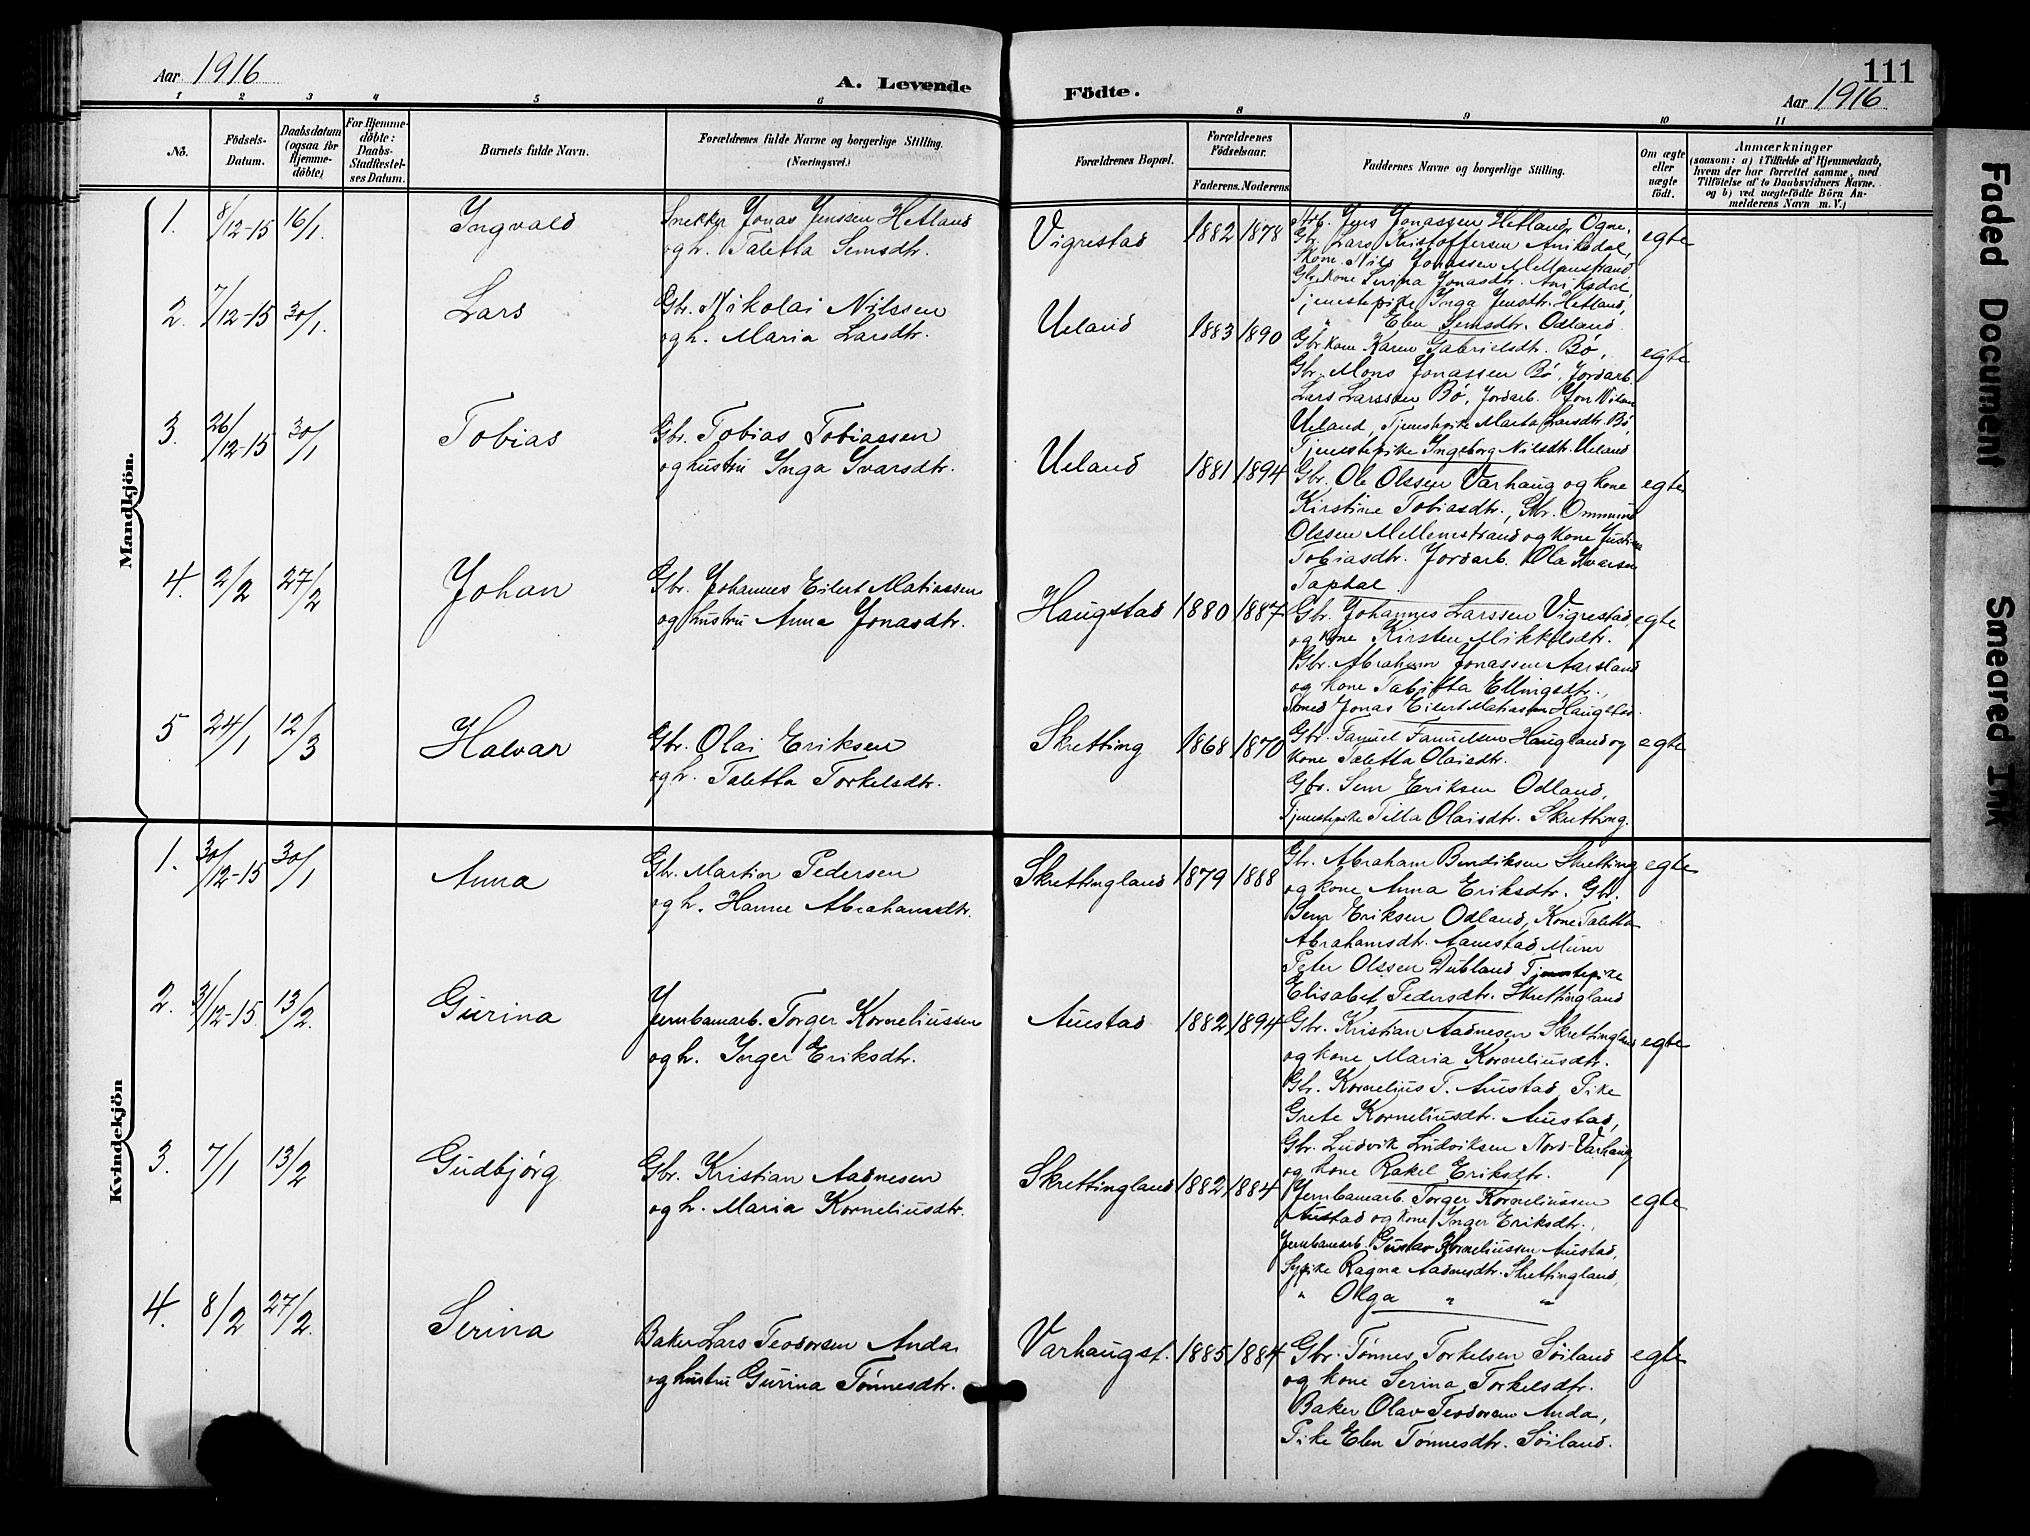 Aar 1916
A. Levende
Födte.
111
Aar 1916
1 2 3 4 5 6 8 9 10 11
Nö.
Födsels-
Datum.
Daabsdatum
(ogsaa for
Hjemme-
döbte)
For Hjemme-
döbte:
Daabs-
Stadfæstel-
ses Datum.
Barnets fulde Navn.
Forældrenes fulde Navne og borgerlige Stilling.
(Næringsvei.)
Forældrenes Bopæl.
Forældrenes
Födselsaar.
Faderens. Moderens
Faddernes Navne og borgerlige Stilling.
Om ægte
eller
uægte
födt.
Anmærkninger
(saasom: a) i Tilfælde af Hjemmedaab,
hvem der har forrettet samme, med
Tilföielse af to Daabsvidners Navne.
og b) ved uægtefödte Börn An-
melderens Navn m. V.)
Mandkjön.
1. 8/12-15 16/1. Ingvald
Snekker Jonas Jenssen Hetland
og h. Taletta Semsdtr.
Vigrestad 1882 1878
Arb. Jens Jonassen Hetland, Ogne,
Gbr. Lars Kristoffersen Aniksdal,
Nils Jonassen Mellemstrand,
Gbr. kone Serina Jonasdtr. Aniksdal,
Tjenestepike Inga Jensdtr. Hetland,
" Elen Semsdtr. Odland.
egte
2. 7/12-15 30/1. Lars
Gbr. Nikolai Nilssen
og h. Maria Larsdtr.
Ueland 1883 1890
Gbr kone Karen Gabrielsdtr. Bø,
Gbr. Mons Jonassen Bø, Jordarb.
Lars Larssen Bø, Jordarb. Jon Nilsen
Ueland, Tjenestepike Marta Larsdtr. Bø,
Tjenestepike Ingeborg Nilsdtr. Ueland
egte
3. 26/12-15 30/1 Tobias
Gbr. Tobias Tobiassen
og hustru Inga Ivarsdtr.
Ueland 1881 1894
Gbr. Ole Olssen Varhaug og kone
Kirstine Tobiasdtr., Gbr. Ommund
Olssen Mellemstrand og kone Justina
Tobiasdtr. Jordarb. Ola Ivarsen
Taptal.
egte
4. 2/2 27/2 Johan
Gbr. Johannes Eilert Matiassen
og hustru Anna Jonasdtr.
Haugstad 1880 1887
Gbr. Johannes Larssen Vigrestad,
og kone Kirsten Mikkelsdtr.
Gbr. Abraham Jonassen Aarsland
og kone Tabitta Ellingsdtr.,
Jonas Eilert Matiassen Haugstad.
egte
5. 24/1 12/3 Halvar
Gbr. Olai Eriksen
og h. Taletta Torkelsdtr.
Skretting 1868 1870
Gbr. Samuel Samuelsen Haugland og
kone Taletta Olaisdtr.
Gbr. Sem Eriksen Odland,
Tjenestepike Tilla Olaisdtr. Skretting.
egte
Kvindekjön
1. 30/12-15 30/1 Anna
Gbr. Martin Pedersen
og h. Hanne Abrahamsdtr.
Skrettingland 1879 1888
Gbr. Abraham Bendiksen Skretting
og kone Anna Eriksdtr. Gbr.
Sem Eriksen Odland, Kone Taletta
Abrahamsdtr. Aanestad Murer
Peter Olssen Dubland Tjenestepike
Elisabet Pedersdtr. Skrettingland
egte
2. 31/12-15. 13/2. Gurina
Jernbanearb. Torger Korneliussen
og h. Inger Eriksdtr.
Austad 1882 1894
Gbr. Kristian Aadnesen Skrettingland
og kone Maria Korneliusdtr.
Gbr. Kornelius T. Austad, Pike
Grete Korneliusdtr. Austad,
Gbr. Ludvik Ludviksen Nord-Varhaug
og kone Rakel Eriksdtr.
egte
3. 7/1 13/2 Gudbjørg
Gbr. Kristian Aadnesen
og h. Maria Korneliusdtr.
Skrettingland 1882 1884
Jernbanearb. Torger Korneliussen
Austad og kone Inger Eriksdtr.,
Jernbanearb. Gustav Korneliussen Austad,
Sypike Ragna Aadnesdtr. Skrettingland,
" Olga " "
egte
4. 8/2 27/2. Serina
Baker Lars Teodorsen Anda
og hustru Gurina Tønnesdtr.
Varhaugst. 1885 1884
Gbr. Tønnes Torkelsen Søiland
og kone Serina Torkelsdtr.
Baker Olav Teodorsen Anda,
Pike Elen Tønnesdtr. Søiland.
egte
Faded Document
Smeared Ink